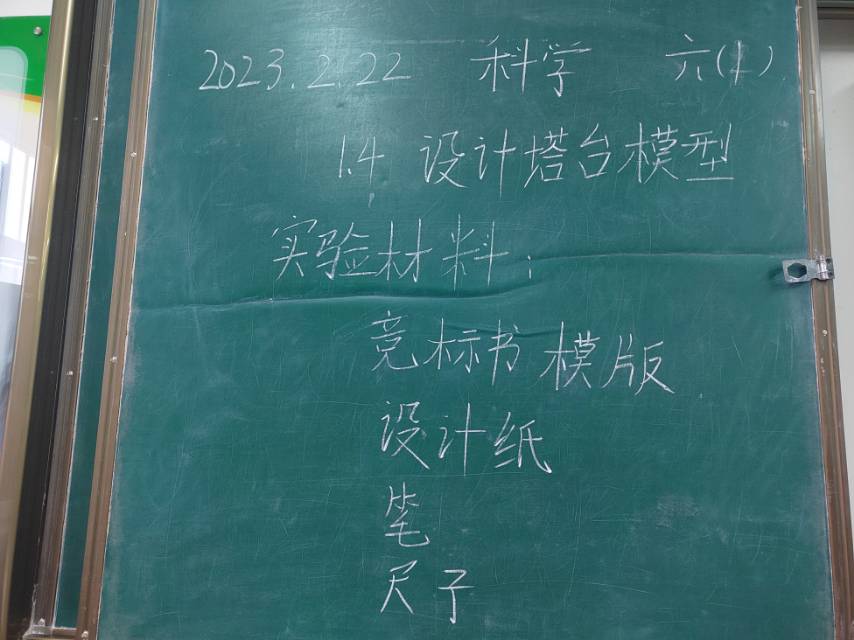 2023.2.22 科学 六(1)
1.4 设计塔台模型
实验材料:
竞标书模版
设计纸
笔
尺子